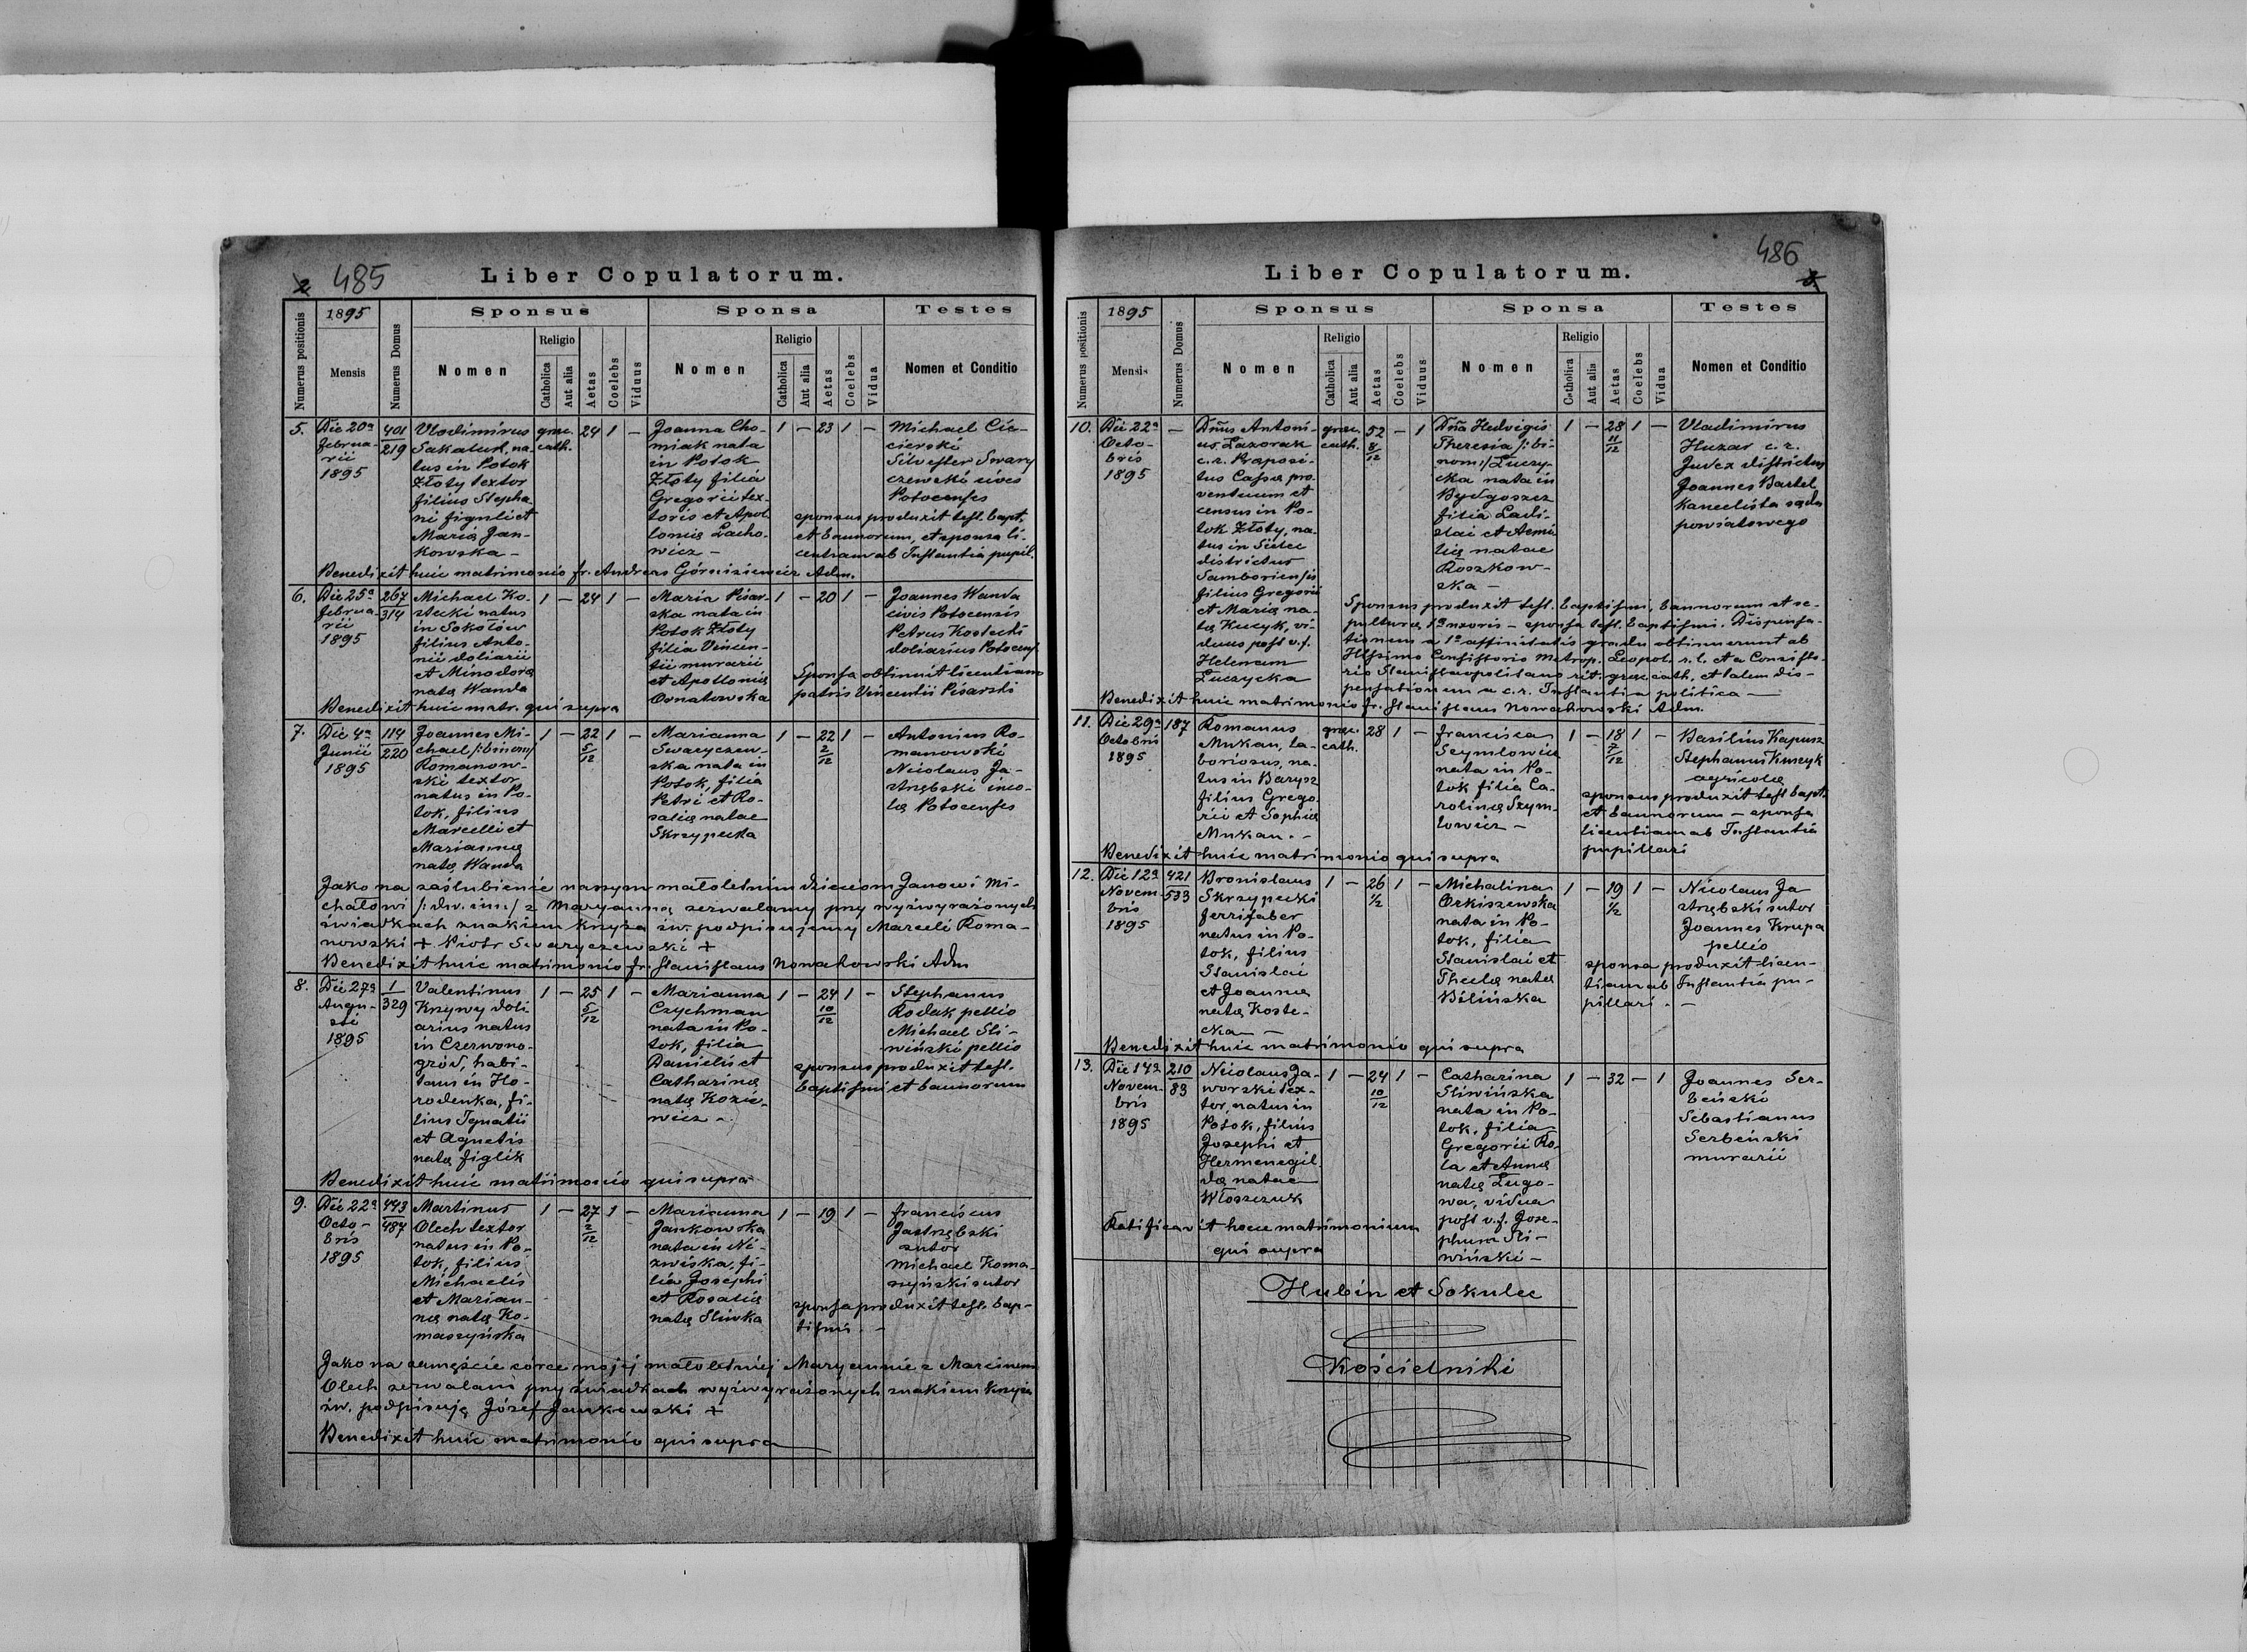 2 485 Liber Copulatorum.
Numerus positionis
1895
Mensis
Numerus Domus
Sponsus
Nomen
Religio
Catholica
Aut alia
Aetas
Coelebs
Viduus
Sponsa
Nomen
Religio
Catholica
Aut alia
Aetas
Coelebs
Vidua
Testes
Nomen et Conditio
5.
Die 20a
Februa-
rii
1895
401
219
Vlodimirus
Sakaluk, na-
tus in Potok
Złoty textor
filius Stepha-
ni figuli et
Maria Jan-
kowska -
graec.
cath.
24 1 -
Joanna Cho-
miak nata
in Potok
Złoty filia
Gregorii tex-
toris et Apol-
lonia Lacho-
wicz -
1 - 23 1 -
Michael Cie-
cierski
Silvester Swary
czewski cives
Potocenses
sponsus produxit test. bapt.
et bannorum, et sponsa li-
centiam ab Instantia pupil.
Benedixit huic matrimonio fr. Andreas Górnisiewicz Adm.
6.
Die 25a
Februa-
rii
1895
267
314
Michael Ko-
stecki natus
in Sokołów
filius Anto-
nii doliarii
et Minodora
nata Wanda
1 - 24 1 -
Maria Pisar-
ska nata in
Potok Złoty
filia Vincen-
tii murarii
et Apollonia
Ornatowska
1 - 20 1 -
Joannes Wanda
civis Potocensis
Petrus Kostecki
doliarius Potocens.
Sponsa obtinuit licentiam
patris Vincentii Pisarski
Benedixit huic matr. qui supra
7.
Die 4a
Junii
1895
114
220
Joannes Mi-
chael /:binom/
Romanow-
ski textor
natus in Po-
tok, filius
Marcelli et
Marianna
nata Wanda
1 - 22 1 -
5
12
Marianna
Swaryczew-
ska nata in
Potok, filia
Petri et Ro-
salia natae
Skrzypecka
1 - 22 1 -
2
12
Antonius Ro-
manowski
Nicolaus Ja-
strzębski inco-
la Potocenses
Jako na zaślubienie naszym małoletnim dzieciom Janowi Mi-
chałowi /:dw. im:/ z Maryanną zezwalamy przy wyżwyrażonych
świadkach znakiem krzyża św. podpisujemy Marceli Roma-
nowski + Piotr Swaryczewski +
Benedixit huic matrimonio fr. Stanislaus Nowakowski Adm
8.
Die 27a
Augu-
sti
1895
1
329
Valentinus
Krzywy doli
arius natus
in Czerwono-
gród, habi-
tans in Ho-
rodenka, fi-
lius Ignatii
et Agnetis
nata Figlik
1 - 25 1 -
5
12
Marianna
Czychman
nata in Po-
tok, filia
Danielis et
Catharina
nata Kozie-
wicz -
1 - 24 1 -
10
12
Stephanus
Rodak pellio
Michael Sli-
wiński pellio
sponsus produxit test.
baptismi et bannorum
Benedixit huic matrimonio qui supra
9.
Die 22a
Octo-
bris
1895
443
487
Martinus
Olech textor
natus in Po-
tok, filius
Michaelis
et Marian-
na nata Ko-
maszyńska
1 - 27 1 -
2
12
Marianna
Jankowska
nata in Ni-
zwiska, fi-
lia Josephi
et Rosalia
nata Sliwka
1 - 19 1 -
Franciscus
Jastrzębski
sutor
Michael Koma-
szyński sutor
sponsa produxit test. bap-
tismi. -
Jako na zamęście córce mojej małoletniej Maryannie z Marcinem
Olech zezwalam przy świadkach wyżwyrażonych znakiem krzyża
św. podpisuję Józef Jankowski +
Benedixit huic matrimonio qui supra
486
Liber Copulatorum. 3.
Numerus positionis
1895
Mensis
Numerus Domus
Sponsus
Nomen
Religio
Catholica
Aut alia
Aetas
Coelebs
Viduus
Sponsa
Nomen
Religio
Catholica
Aut alia
Aetas
Coelebs
Vidua
Testes
Nomen et Conditio
10.
Die 22a
Octo-
bris
1895
-
Dnus Antoni-
us Lazorak
c.r. Praeposi-
tus Cassa pro-
ventuum et
census in Po-
tok Złoty, na-
tus in Sielec
districtus
Samboriensis
filius Gregorii
et Maria na-
ta Kucyk, vi-
duus post v.f.
Helenam
Łuczycka
graec.
cath.
52 - 1
8
12
Dna Hedvigis
Theresia /:bi-
nom:/ Łuczy-
cka nata in
Bydgoszcz
filia Ladi-
slai et Aemi-
lia natae
Roszkow-
ska -
1 - 28 1 -
11
12
Vladimirus
Huzar c.r.
Judex districtus
Joannes Bartel
kancelista sądu
powiatowego
Sponsus produxit test. baptismi, bannorum et se-
pultura 1a uxoris - sponsa test. baptismi. Dispensa-
tionem a 1o affinitatis gradu obtinuerunt ab
Illssimo Consistorio Metrop. Leopol. r.l. et a Consisto-
rio Stanislaopolitano rit. graec. cath, et talem dis-
pensationem a c.r. Instantia politica -
Benedixit huic matrimonio fr. Stanislaus Nowakowski Adm.
11.
Die 29a
Octobris
1895
187
Romanus
Mukan, la-
boriosus, na-
tus in Barysz
filius Grego-
rii et Sophia
Mukan. -
graec.
cath.
28 1 -
Francisca
Scymlowicz
nata in Po-
tok filia Ca-
rolina Szym-
lowicz -
1 - 18 1 -
7
12
Basilius Kapusz
Stephanus Kuszyk
agricola
sponsus produxit test bapt.
et bannorum - sponsa
licentiam ab Instantia
pupillari
Benedixit huic matrimonio qui supra
12.
Die 12a
Novem-
bris
1895
421
533
Bronislaus
Skrzypecki
ferrifaber
natus in Po-
tok, filius
Stanislai
et Joanna
nata Koste-
cka -
1 - 26 1 -
1/2
Michalina
Orkiszewska
nata in Po-
tok, filia
Stanislai et
Thecla nata
Bilińska
1 - 19 1 -
1/2
Nicolaus Ja
strzębski sutor
Joannes Krupa
pellio
sponsa produxit licen-
tiam ab Instantia pu-
pillari. -
Benedixit huic matrimonio qui supra
13.
Die 14a
Novem-
bris
1895
210
83
Nicolaus Ja-
worski tex-
tor, natus in
Potok, filius
Josephi et
Hermenegil-
da natae
Włoszczuk
1 - 24 1 -
10
12
Catharina
Sliwińska
nata in Po-
tok, filia
Gregorii Ro-
la et Anna
nata Ługo-
wa, vidua
post v.f. Jose-
phum Sli-
wiński -
1 - 32 - 1
Joannes Ser-
beński
Sebastianus
Serbeński
murarii
Ratificavit hocce matrimonium
qui supra
Hubin et Sokulec
Kościelniki